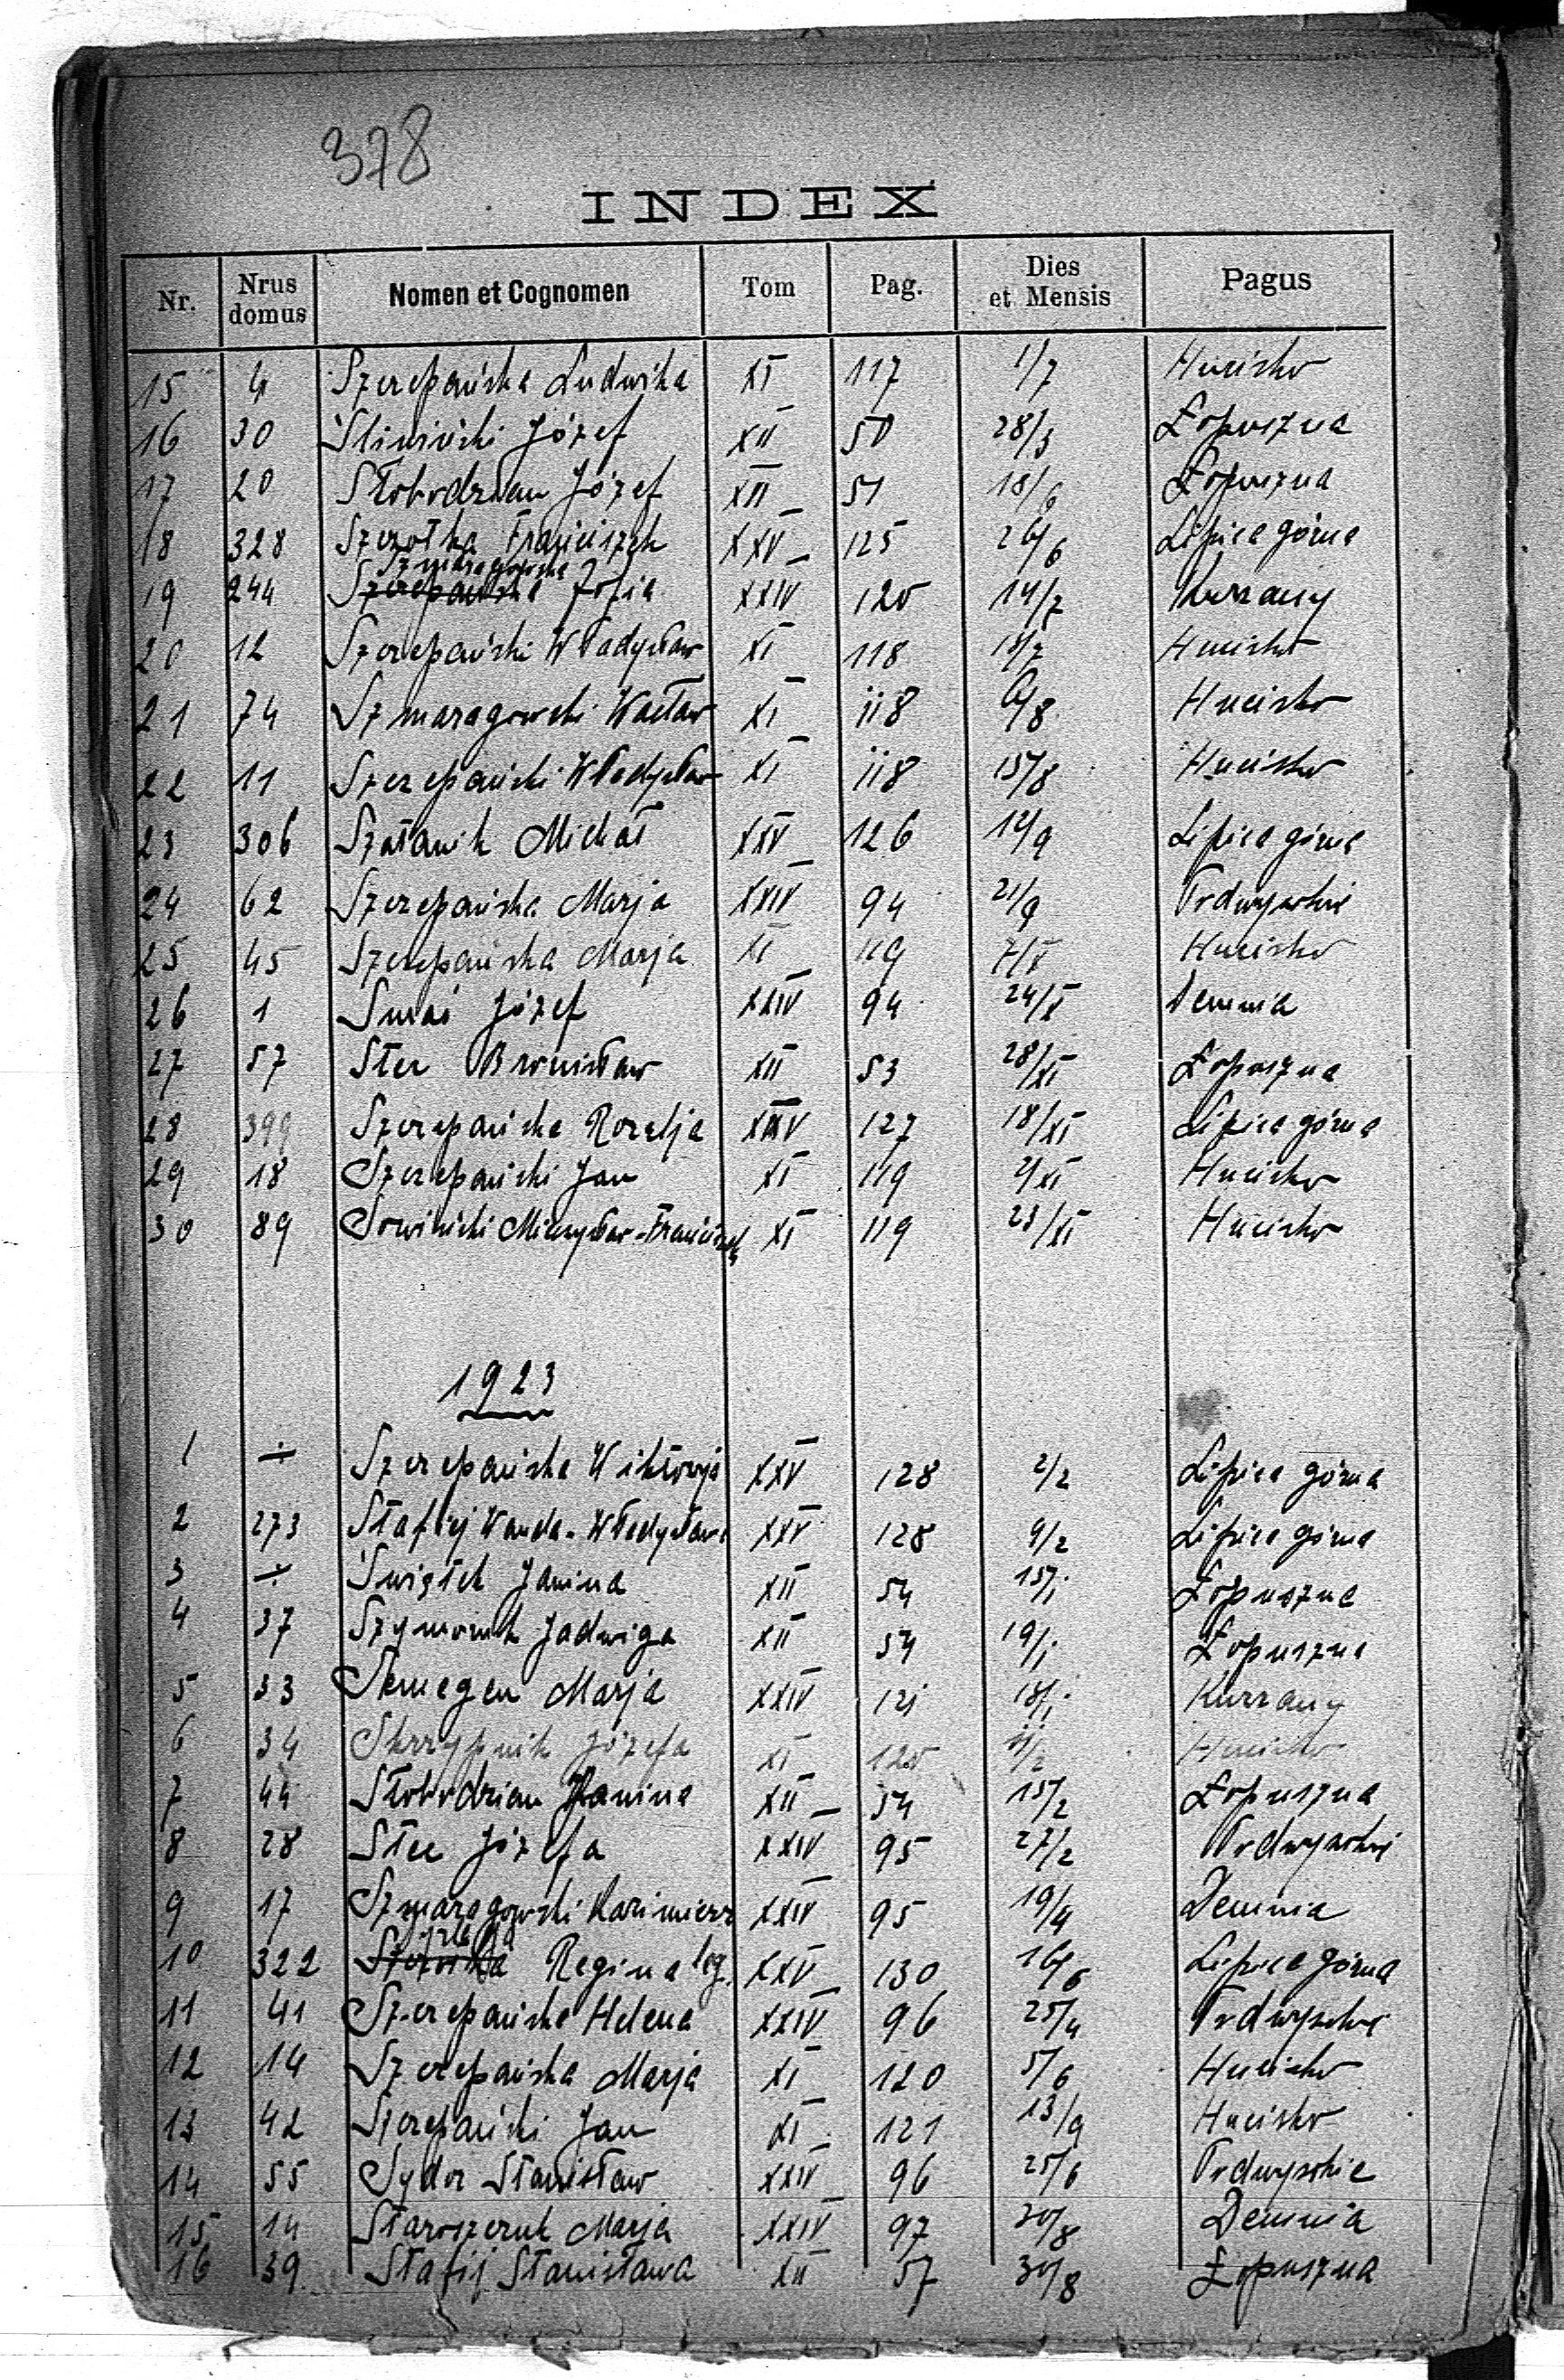 378
INDEX
Nr. Nrus domus Nomen et Cognomen Tom Pag. Dies et Mensis Pagus
15 4 Szczepańska Ludwika XI 117 1/7 Hucisko
16 30 Śliwiński Józef XII 50 28/3 Łopuszna
17 20 Słobodzian Józef XII 51 18/6 Łopuszna
18 328 Szczotka Franciszek XXV 125 26/6 Lipica górna
Szmaragowska
19 244 Szczepańska Zofia XXIV 120 14/7 Kurzany
20 12 Szczepański Władysław XI 118 18/7 Hucisko
21 74 Szmaragowski Wacław XI 118 6/8 Hucisko
22 11 Szczepański Władysław XI 118 15/8 Hucisko
23 306 Szatanik Michał XXV 126 12/9 Lipica górna
24 62 Szczepańska Marja XXIV 94 21/9 Podwysokie
25 45 Szczepańska Marja XI 119 7/X Hucisko
26 1 Józef XXIV 94 24/X Demnia
27 57 Stec Bronisław XII 53 28/XI Łopuszna
28 399 Szczepańska Rozalja XXV 127 18/XI Lipica górna
29 18 Szczepański Jan XI 119 XI Hucisko
30 89 Sowiński Mieczysław-Franciszek XI 119 23/XI Hucisko
1923
1 ÷ Szczepańska Wiktorja XXV 128 2/2 Lipica górna
2 273 Stafij Wanda-Władysława XXV 128 9/2 Lipica górna
3 ÷ Świątek Janina XII 54 15/1 Łopuszna
4 37 Szymoniuk Jadwiga XII 54 19/1 Łopuszna
5 33 Marja XXIV 121 18/1 Kurzany
6 34 Skrzypnik Józefa XI 120 11/2 Hucisko
7 44 Słobodzian Janina XII 54 15/2 Łopuszna
8 28 Stec Józefa XXIV 95 27/2 Podwysokie
9 17 Szmaragowski Kazimierz XXIV 95 19/4 Demnia
10 322 Regina leg. XXV 130 16/6 Lipica górna
11 41 Szczepańska Helena XXIV 96 25/4 Podwysokie
12 14 Szczepańska Marja XI 120 5/6 Hucisko
13 42 Szczepański Jan XI 121 13/9 Hucisko
14 55 Sydor Stanisław XXIV 96 25/6 Podwysokie
15 14 Staroszczuk Marja XXIV 97 20/8 Demnia
16 39 Stafij Stanisława XII 57 30/8 Łopuszna